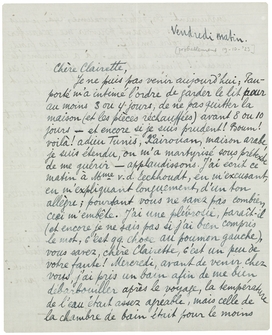 Vendredi matin.
Chère Clairette,
Je ne puis pas venir aujourd'hui;
m'a intimé l'ordre de garder le lit pour
au moins 3 ou 4 jours, de ne pas quitter la
maison (et les pièces réchauffées) avant 8 ou 10
jours — et encore si je suis prudent! Boum!
voilà! adieu Tunis, Kairouan, maison arabe
je suis étendu, on m'a martyrisé sous prétexte
de me guérir — applaudissons. J'ai écrit ce
matin à Mme v. d. Eeckhoudt, en m'excusant,
en m'expliquant longuement, d'un bon
allègre; pourtant vous ne savez pas combien
ceci m'embête. J'ai une pleurésie, paraît-il
(et encore je ne sais pas si j'ai bien compris
le mot, c'est qq chose au poumon gauche),
vous savez, chère Clairette, c'est un peu de
votre faute! Mercredi, avant de venir chez
vous, j'ai pris un bain afin de me bien
débarbouiller après le voyage, la température
de l'eau était assez agréable, mais celle de
la chambre de bain était pour le moins